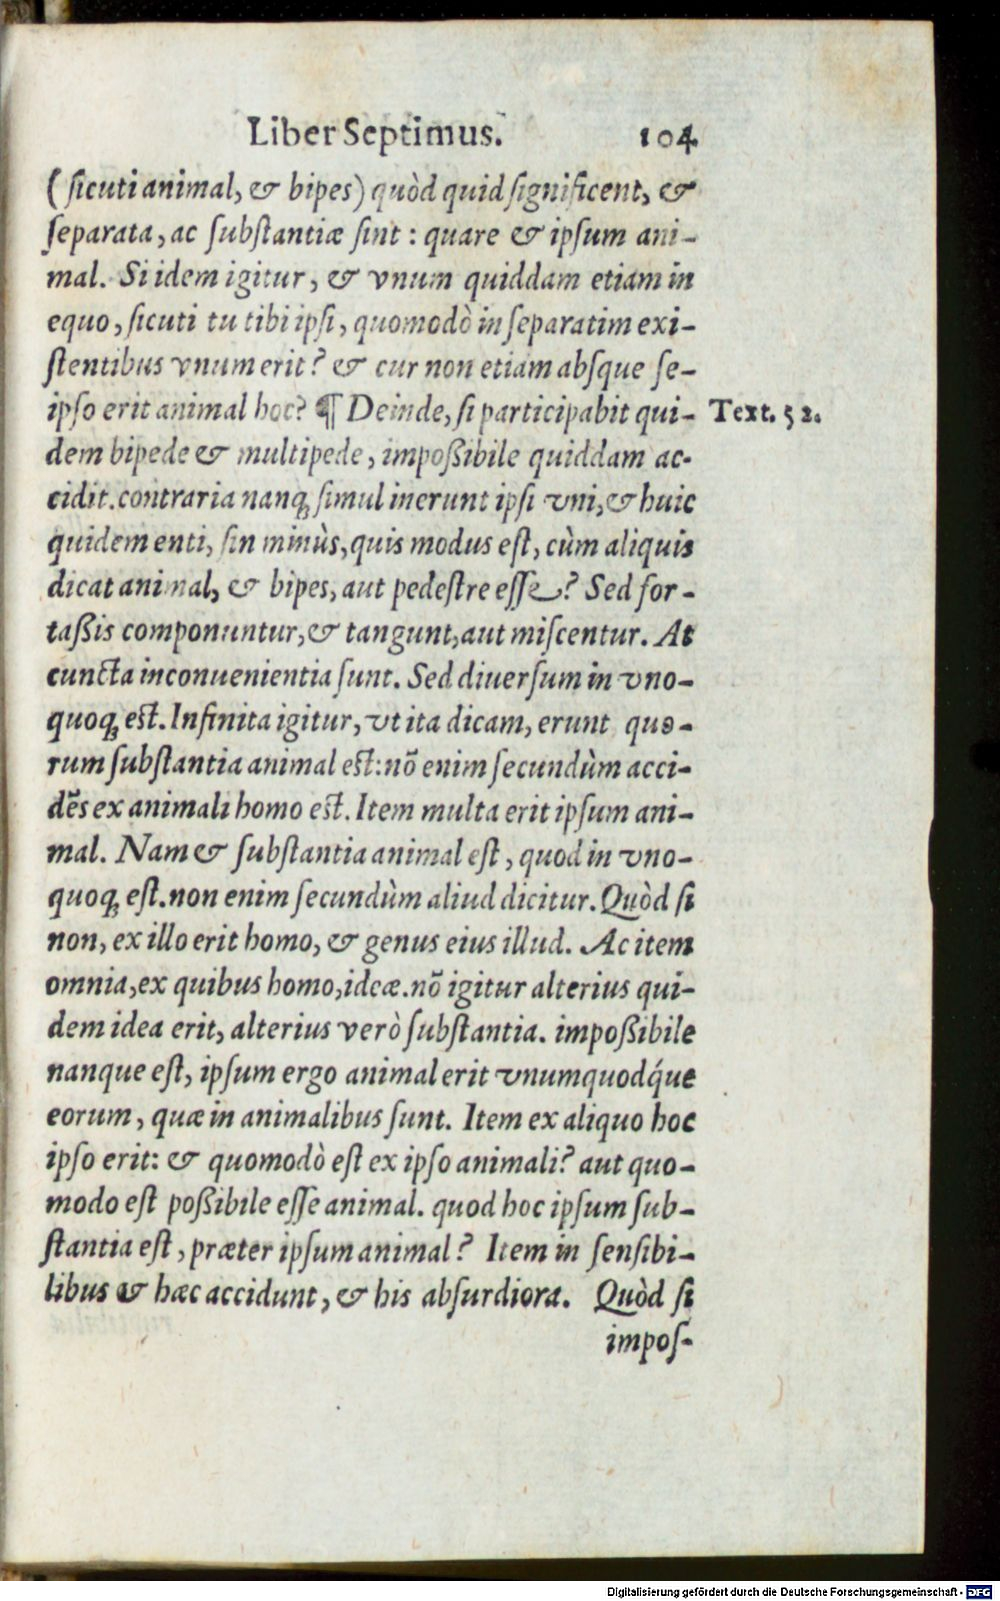 Liber Septimus. 104
(ſicuti animal, & bipes) quòd quid ſignificent, &
ſeparata, ac ſubſtantiæ ſint : quare & ipſum ani-
mal. Si idem igitur, & vnum quiddam etiam in
equo, ſicuti tu tibi ipſi, quomodò in ſeparatim exi-
ſtentibus vnum erit? & cur non etiam abſque ſe-
ipſo erit animal hoc? ¶ Deinde, ſi participabit qui- Text. 52.
dem bipede & multipede, impoßibile quiddam ac-
cidit. contraria nanq; ſimul inerunt ipſi vni, & huic
quidem enti, ſin minùs, quis modus eſt, cùm aliquis
dicat animal, & bipes, aut pedeſtre eſſe? Sed for-
taßis componuntur, & tangunt, aut miſcentur. At
cuncta inconuenientia ſunt. Sed diuerſum in vno-
quoq; eſt. Infinita igitur, vt ita dicam, erunt quo-
rum ſubſtantia animal eſt: nõ enim ſecundùm acci-
dẽs ex animali homo eſt. Item multa erit ipſum ani-
mal. Nam & ſubſtantia animal eſt, quod in vno-
quoq; eſt. non enim ſecundùm aliud dicitur. Quòd ſi
non, ex illo erit homo, & genus eius illud. Ac item
omnia, ex quibus homo, ideæ. nõ igitur alterius qui-
dem idea erit, alterius verò ſubſtantia. impoßibile
nanque eſt, ipſum ergo animal erit vnumquodq́ue
eorum, quæ in animalibus ſunt. Item ex aliquo hoc
ipſo erit: & quomodò eſt ex ipſo animali? aut quo-
modo eſt poßibile eſſe animal. quod hoc ipſum ſub-
ſtantia eſt, præter ipſum animal? Item in ſenſibi-
libus & hæc accidunt, & his abſurdiora. Quòd ſi
impoſ-
Digitalisierung gefördert durch die Deutsche Forschungsgemeinschaft - DFG